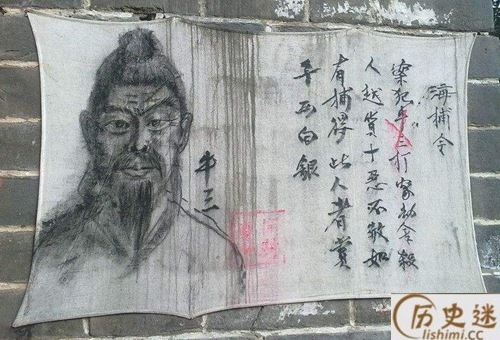 海捕令
案犯牛三打家劫舍殺
人越貨十恶不赦如
有捕得此人者賞
两白銀
牛三
历史迷
lishimi.cc